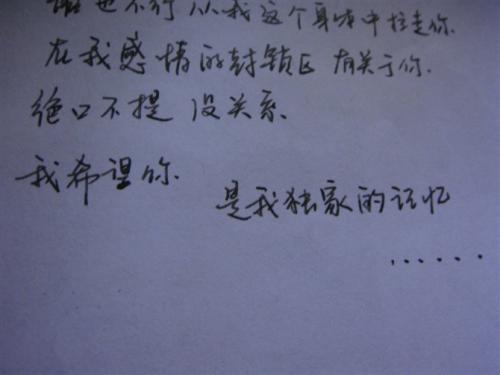 谁也不行从我这个身体中拉走你.
在我感情的封锁区 有关于你.
绝口不提 没关系.
我希望你.
是我独家的记忆
......